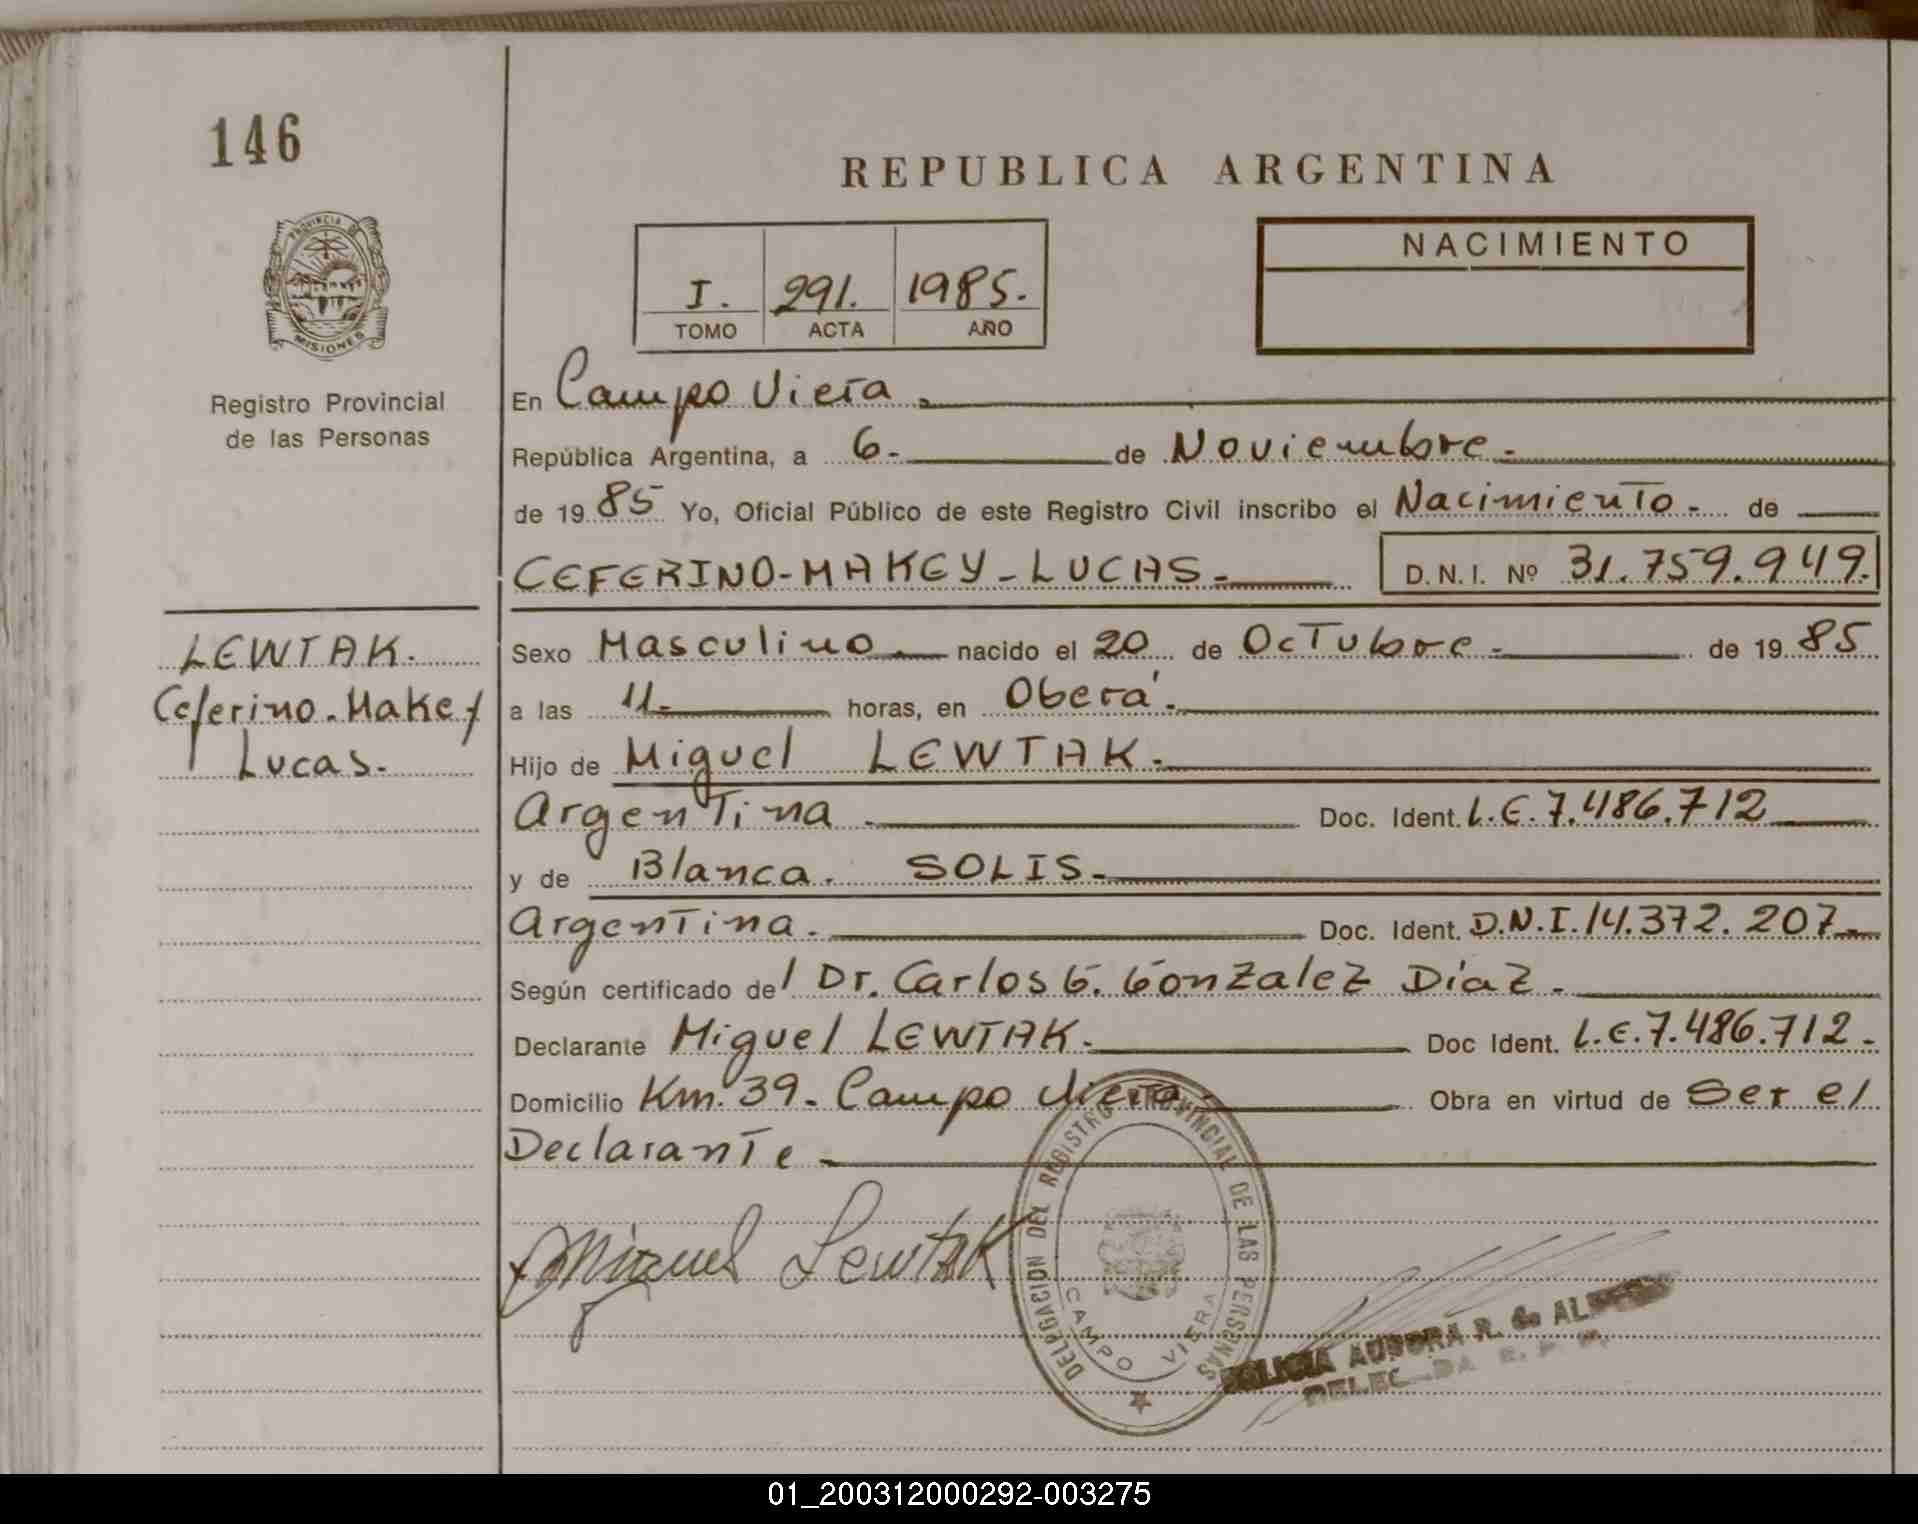 146
REPUBLICA ARGENTINA
PROVINCIA DE
MISIONES
NACIMIENTO
I. 291. 1985.
TOMO ACTA AÑO
Registro Provincial
de las Personas
En Campo Viera.
República Argentina, a 6. de Noviembre.
de 1985 Yo, Oficial Público de este Registro Civil inscribo el Nacimiento. de
CEFERINO-MAKEY-LUCAS. D.N.I. Nº 31.759.949.
LEWTAK.
Ceferino. Makey
Lucas.
Sexo Masculino. nacido el 20 de Octubre. de 1985
a las 11. horas, en Oberá.
Hijo de Miguel LEWTAK.
Argentina. Doc. Ident. L.E. 7.486.712
y de Blanca. SOLIS.
Argentina. Doc. Ident. D.N.I. 14.372.207.
Según certificado del Dr. Carlos G. Gonzalez Díaz.
Declarante Miguel LEWTAK. Doc Ident. L.E. 7.486.712.
Domicilio Km. 39. Campo Viera. Obra en virtud de Ser el
Declarante.
Miguel Lewtak
DELEGACION DEL REGISTRO PROVINCIAL DE LAS PERSONAS
CAMPO VIERA
AURORA R. de
01_200312000292-003275